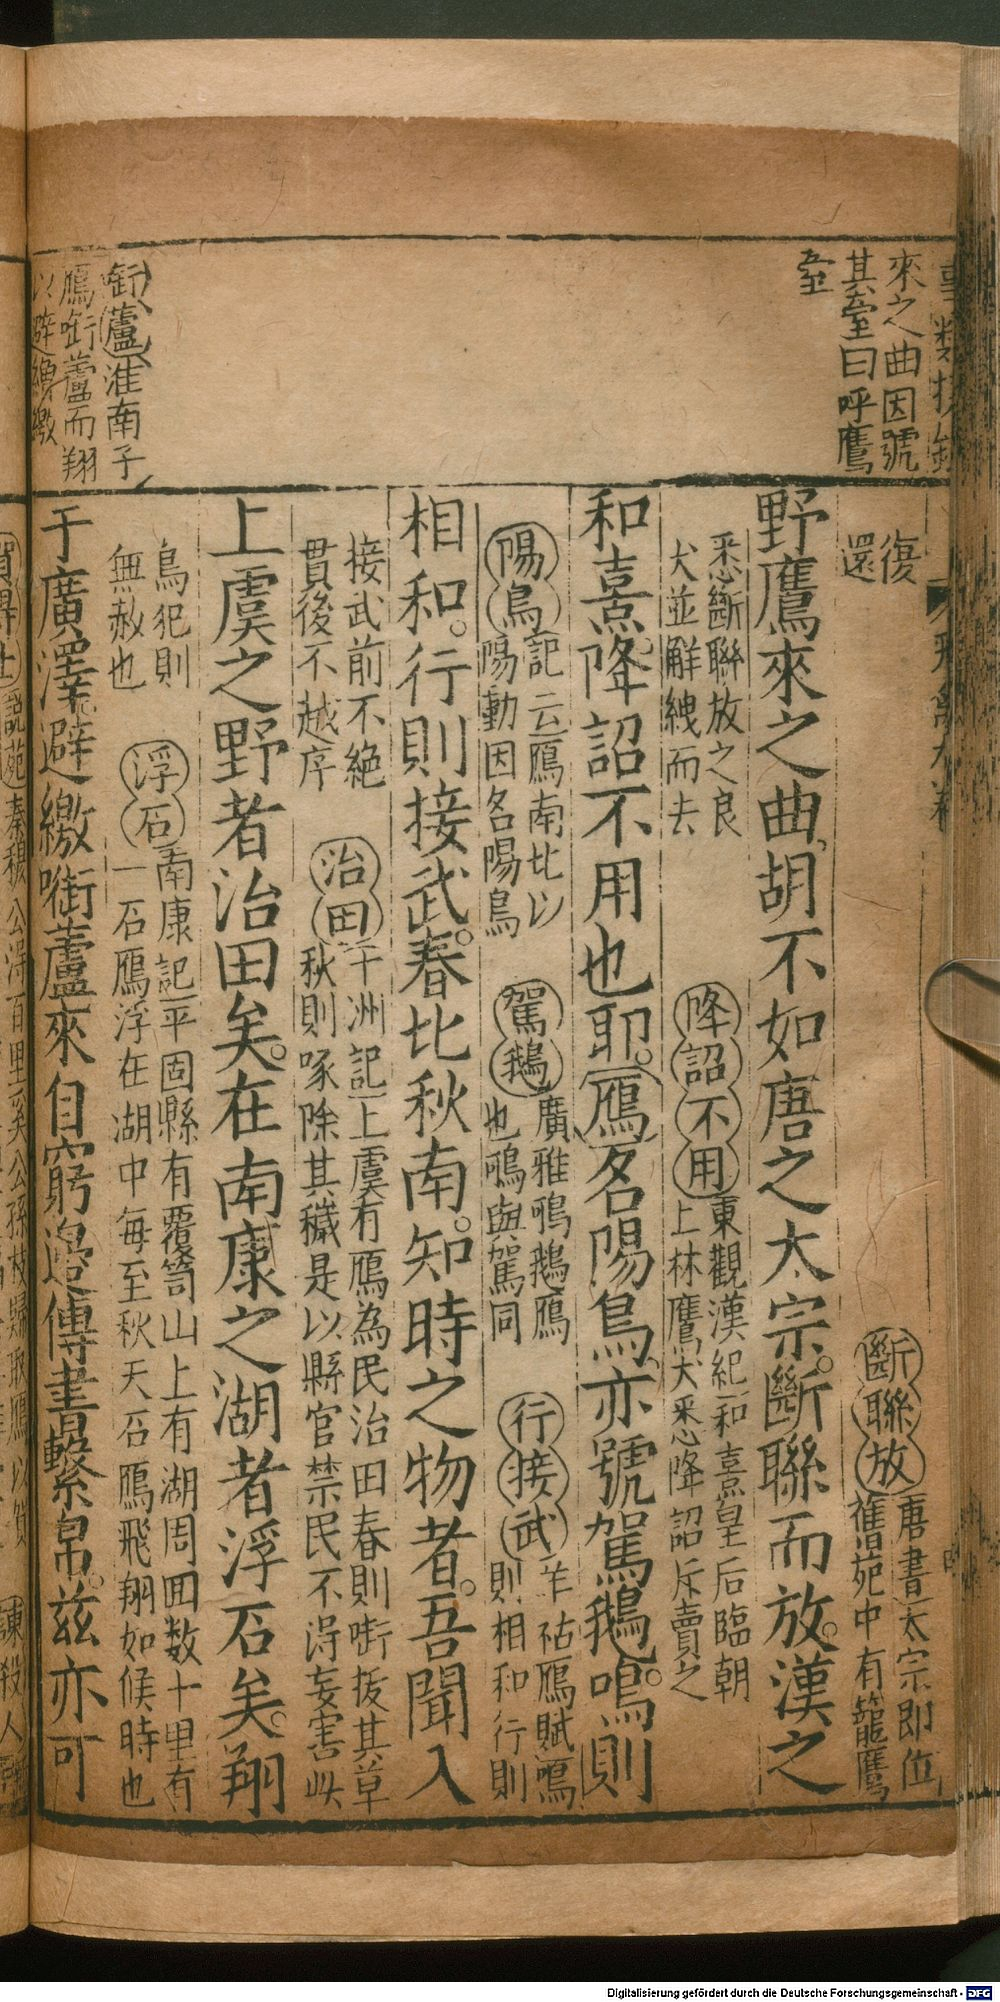 來之曲因號
其臺曰呼鷹
臺
復
還
斷聯放
唐書太宗即位
舊苑中有籠鷹
野鷹來之曲胡不如唐之太宗斷聯而放漢之
悉斷聯放之良
犬並解絏而去
降詔不用
東觀漢紀和熹皇后臨朝
上林鷹犬悉降詔斥賣之
和熹降詔不用也耶鴈名陽鳥亦號駕鵝鳴則
陽鳥
記云鴈南北以
陽動因名陽鳥
駕鵝
廣雅鳴鵝鴈
也鳴與駕同
行接武
羊祜鴈賦鳴
則相和行則
相和行則接武春北秋南知時之物者吾聞入
接武前不絕
貫後不越序
治田
十洲記上虞有鴈為民治田春則啣拔其草
秋則啄除其穢是以縣官禁民不得妄害此
上虞之野者治田矣在南康之湖者浮石矣翔
鳥犯則
無赦也
浮石
南康記平固縣有覆笥山上有湖周囬数十里有
一石鴈浮在湖中每至秋天石鴈飛翔如候時也
銜蘆淮南子
鴈啣蘆而翔
以避繒繳
于廣澤避繳啣蘆來自窮邊傳書繫帛茲亦可
説苑秦穆公得百里奚公孫枝歸取鴈以賀
Digitalisierung gefördert durch die Deutsche Forschungsgemeinschaft - DFG